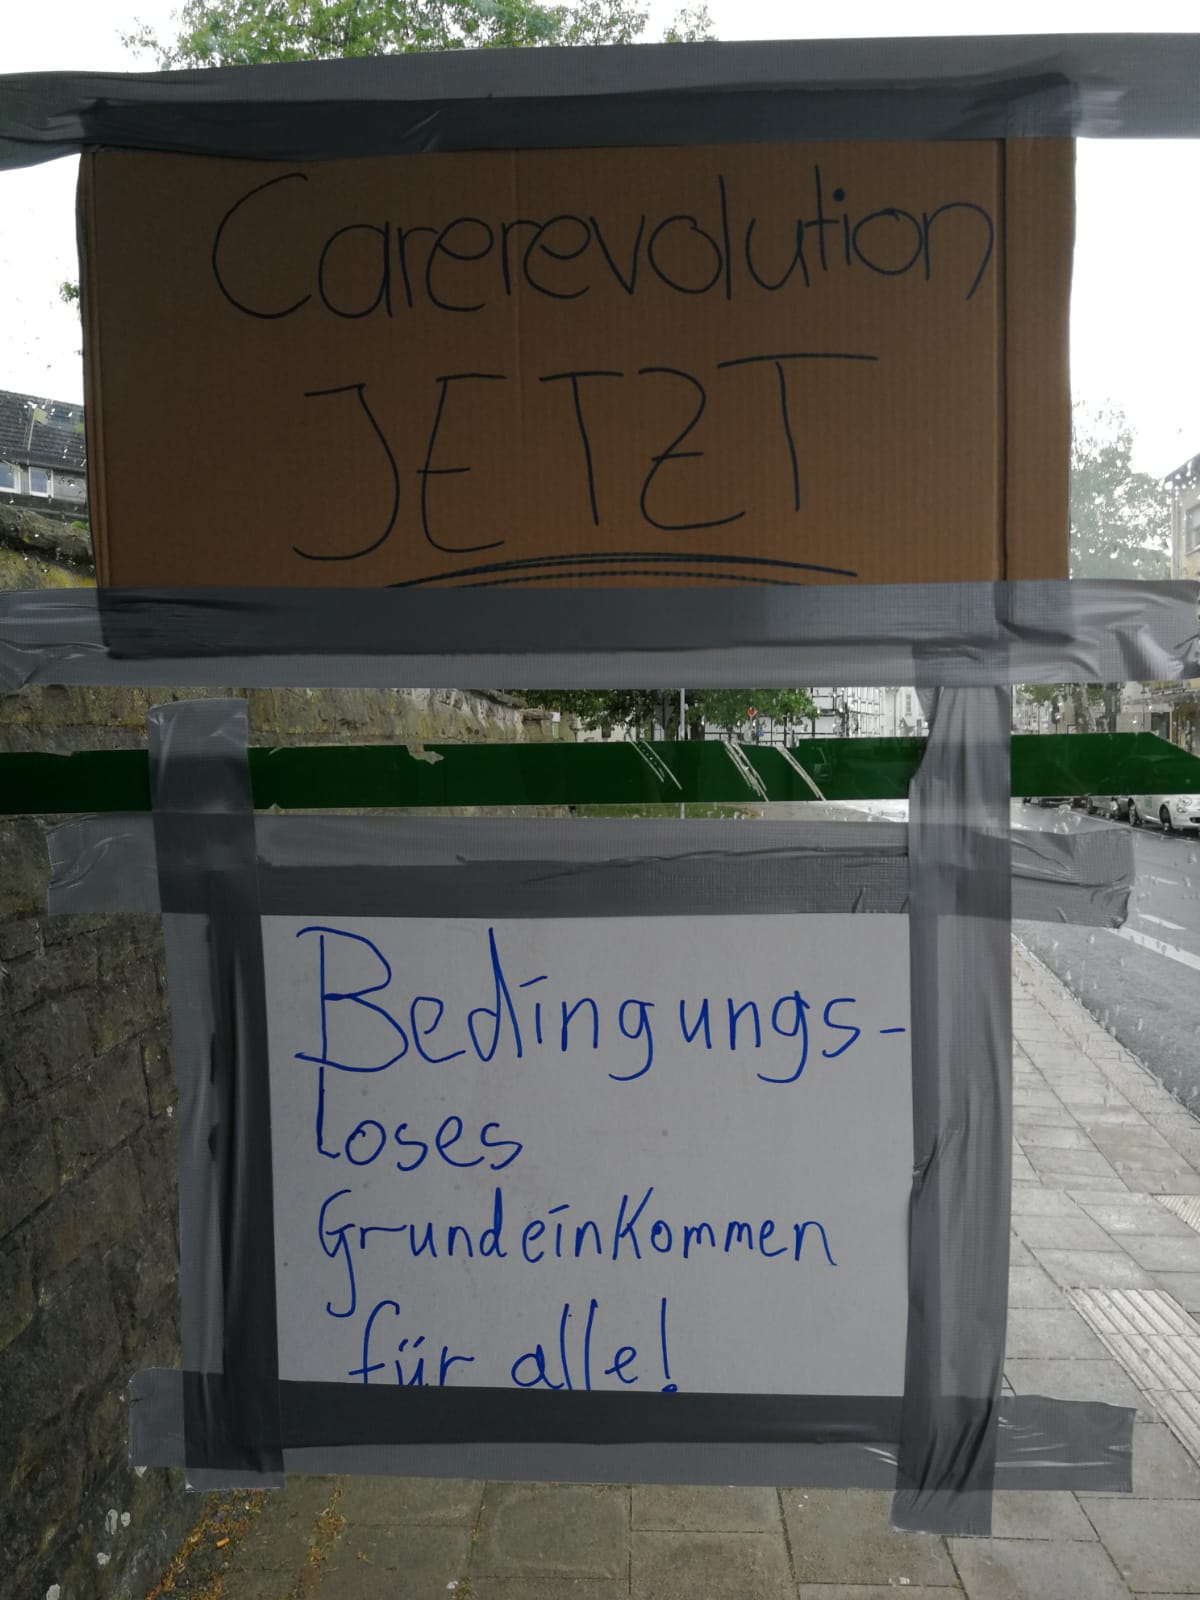 Carerevolution
JETZT
Bedingungs-
loses
Grundeinkommen
für alle!